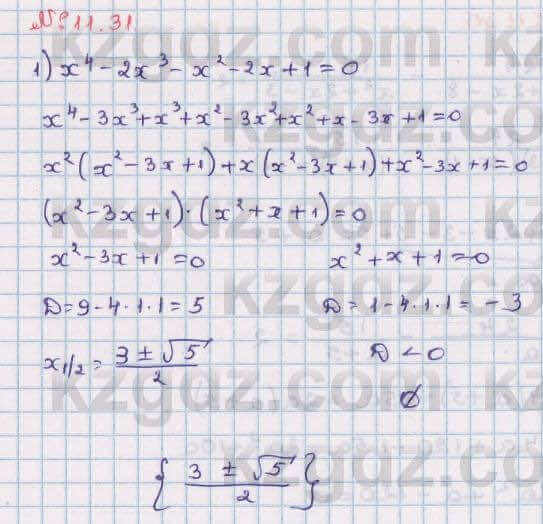 № 11.31
1) x⁴ - 2x³ - x² - 2x + 1 = 0
x⁴ - 3x³ + x³ + x² - 3x² + x² + x - 3x + 1 = 0
x² (x² - 3x + 1) + x (x² - 3x + 1) + x² - 3x + 1 = 0
(x² - 3x + 1) · (x² + x + 1) = 0
x² - 3x + 1 = 0 x² + x + 1 = 0
D = 9 - 4 · 1 · 1 = 5 D = 1 - 4 · 1 · 1 = - 3
x₁/₂ = (3 ± √5)/2 D < 0
∅
{ (3 ± √5)/2 }
kzgdz.com